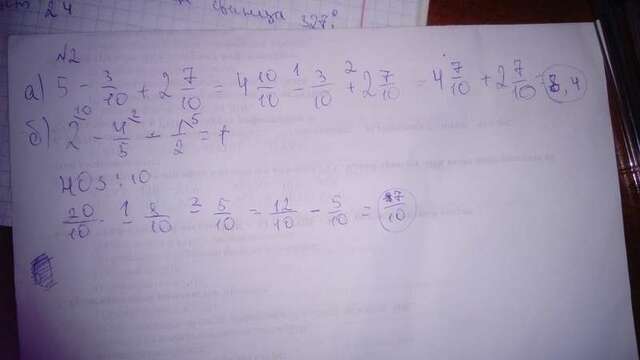 свинца 327°
№2
а) 5 - 3/10 + 2 7/10 = 4 10/10 - 3/10 + 2 7/10 = 4 7/10 + 2 7/10 = 8,4
б) 2 - 4/5 - 1/2 = 1
НОЗ: 10
20/10 - 8/10 - 5/10 = 12/10 - 5/10 = 7/10